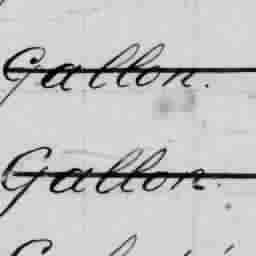 Gallon.
Gallon.